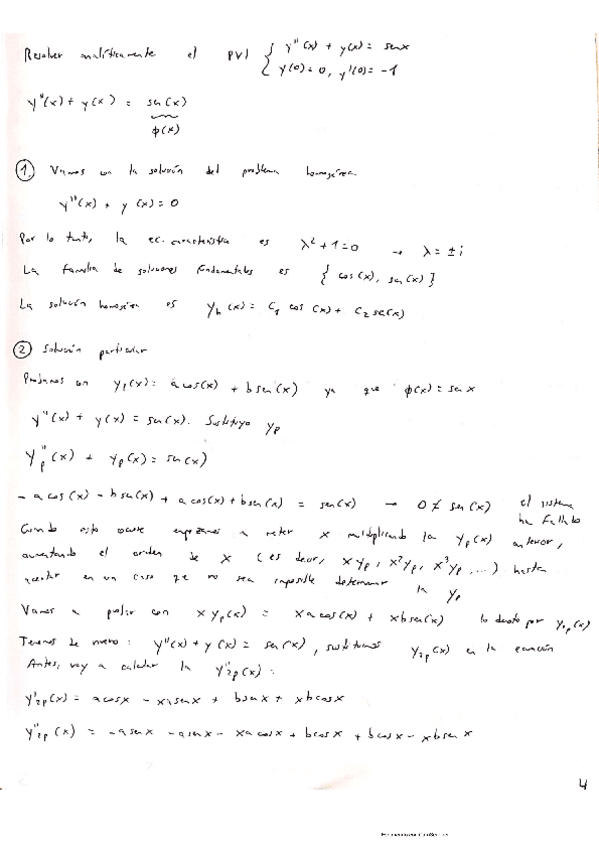 Resolver analíticamente el PVI { y''(x) + y(x) = sen x
y(0) = 0, y'(0) = -1
y''(x) + y(x) = sen(x)
ϕ(x)
① Vamos con la solución del problema homogénea
y''(x) + y(x) = 0
Por lo tanto, la ec. característica es λ² + 1 = 0 → λ = ± i
La familia de soluciones fundamentales es { cos(x), sen(x) }
La solución homogénea es y_h(x) = C₁ cos(x) + C₂ sen(x)
② Solución particular
Probamos con y_p(x) = a cos(x) + b sen(x) ya que ϕ(x) = sen x
y''(x) + y(x) = sen(x). Sustituyo y_p
y''_p(x) + y_p(x) = sen(x)
- a cos(x) - b sen(x) + a cos(x) + b sen(x) = sen(x) → 0 ≠ sen(x) el sistema
ha fallado
Cuando esto ocurre empezamos a meter x multiplicando la y_p(x) anterior,
aumentando el orden de x (es decir, x y_p, x² y_p, x³ y_p, ...) hasta
en un caso que no sea imposible determinar la y_p
Vamos a probar con x y_p(x) = x a cos(x) + x b sen(x) lo denoto por y_2p(x)
Tenemos de nuevo: y''(x) + y(x) = sen(x), sustituimos y_2p(x) en la ecuación
Antes, voy a calcular la y''_2p(x):
y'_2p(x) = a cos x - x a sen x + b sen x + x b cos x
y''_2p(x) = - a sen x - a sen x - x a cos x + b cos x + b cos x - x b sen x
4